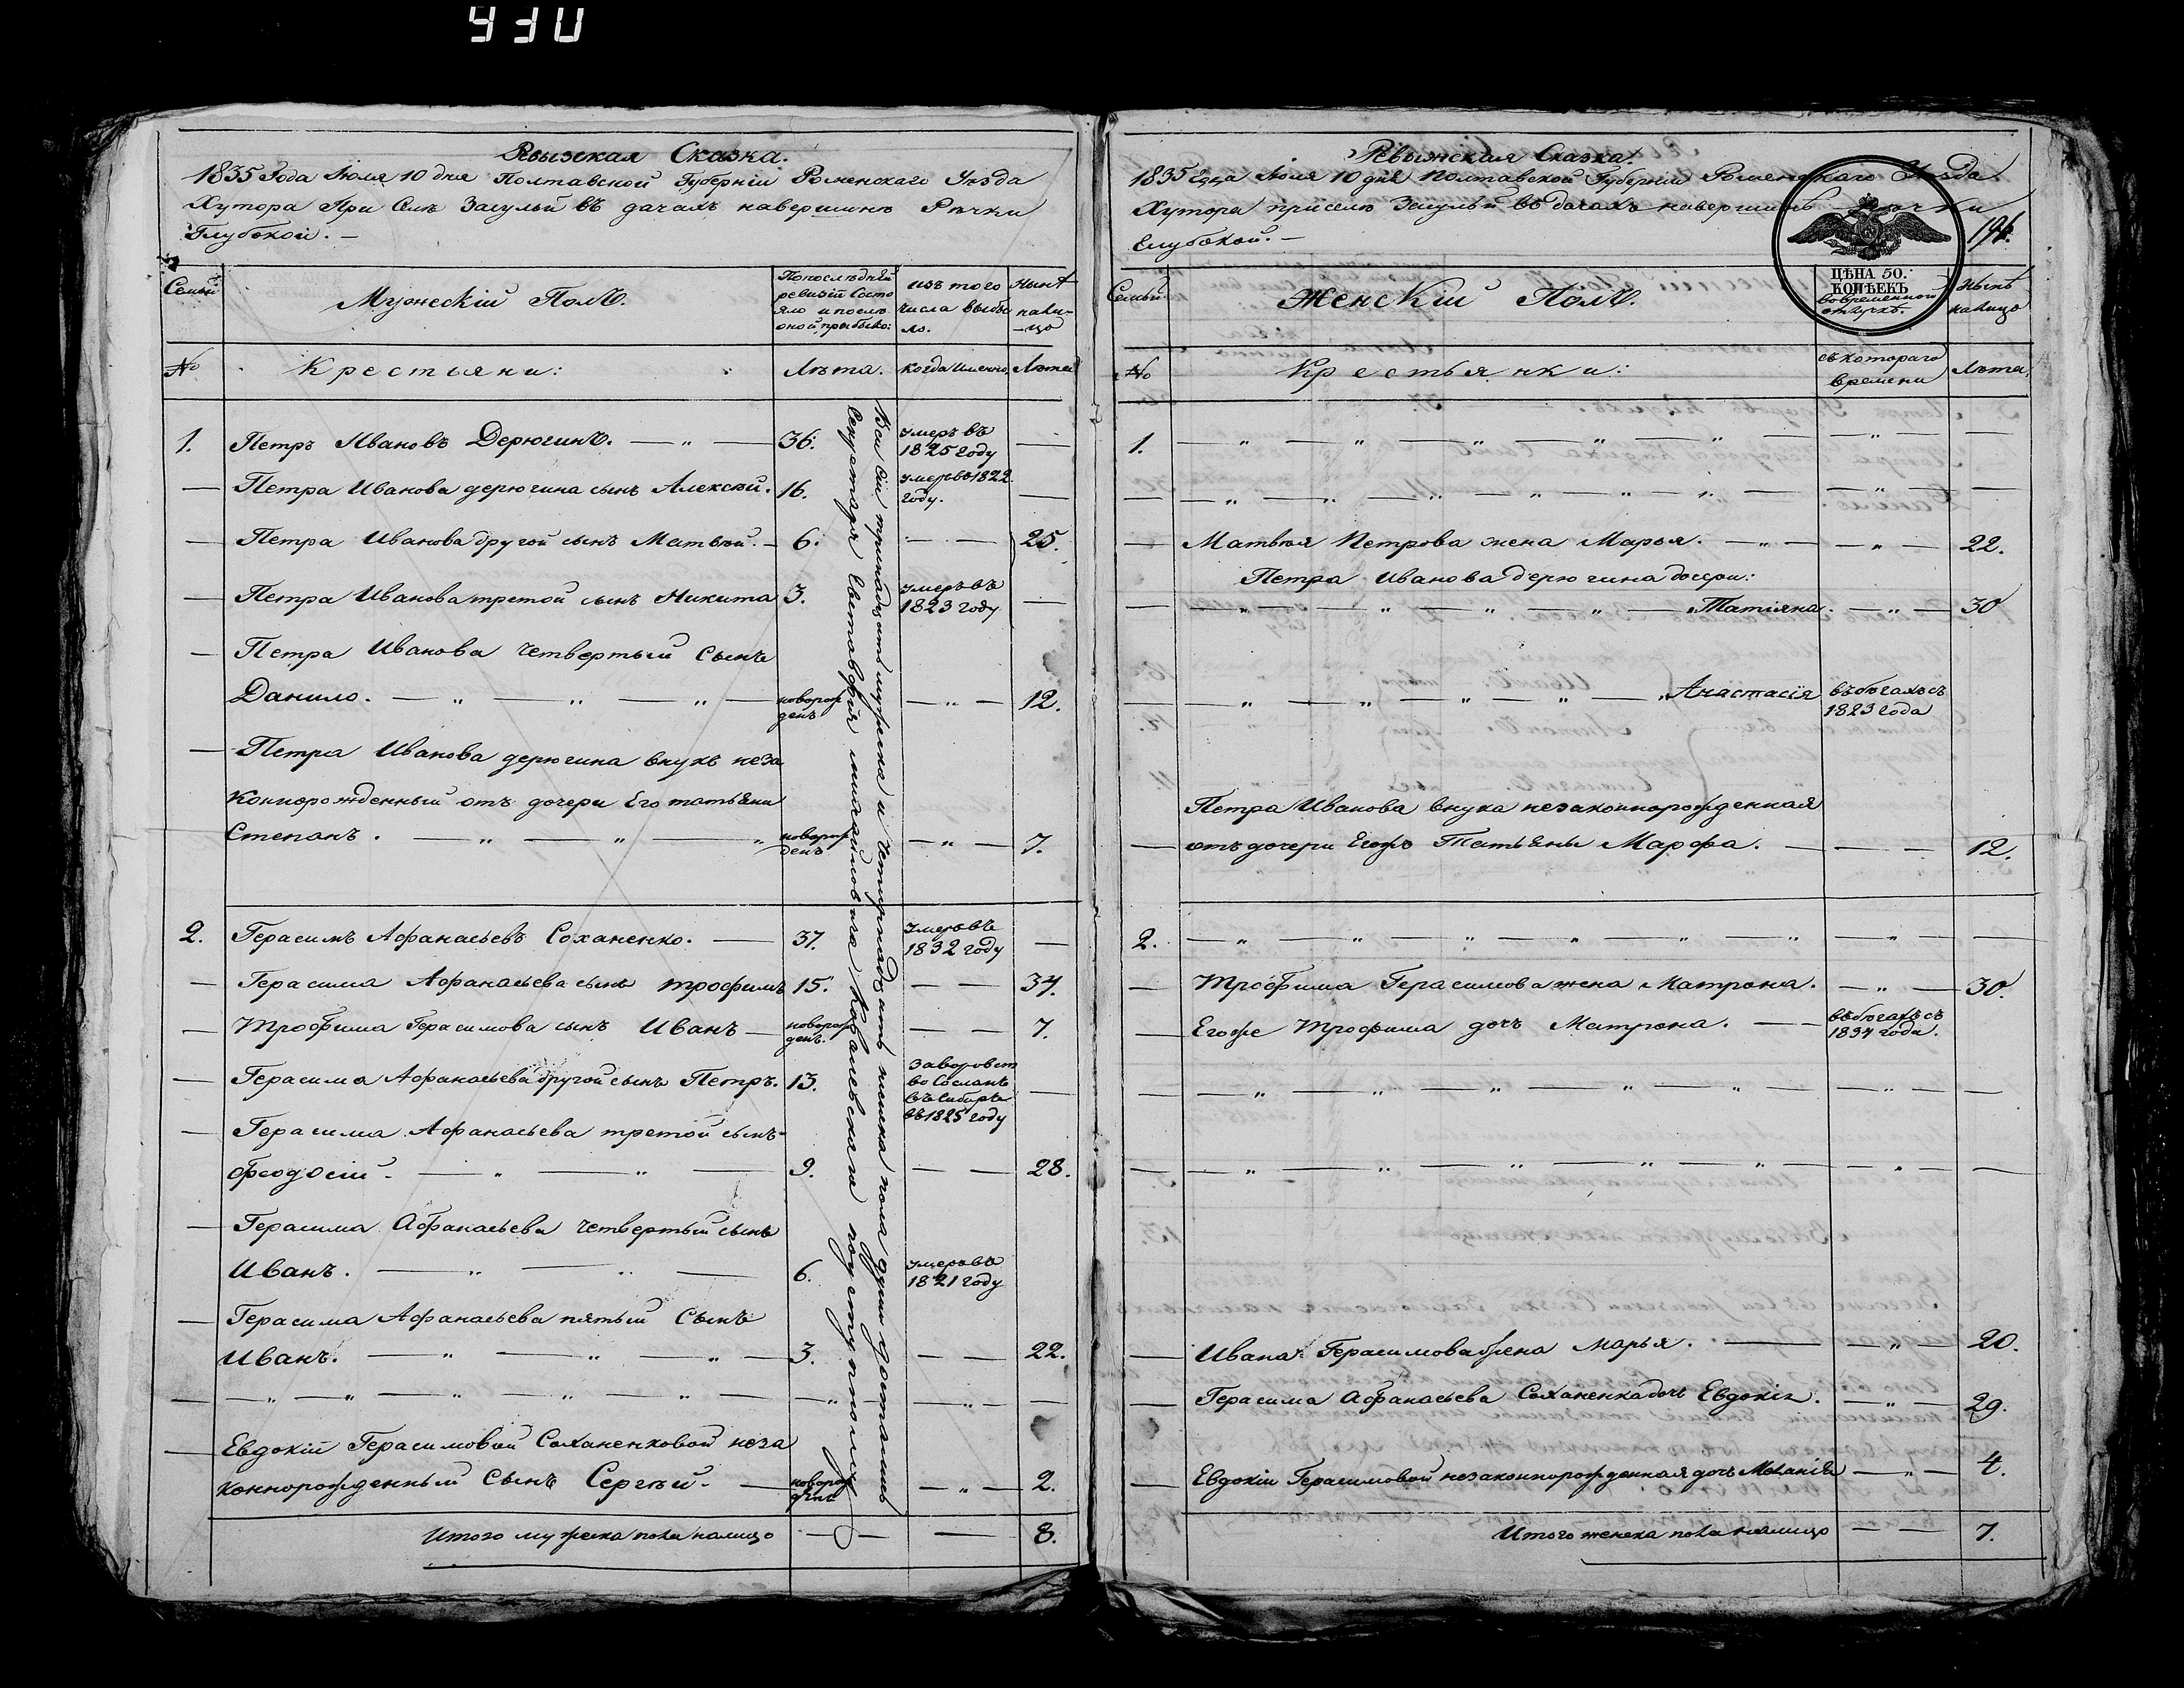 530
Ревизская Сказка.
1835 Года Июля 10 дня Полтавской Губернии Роменскаго Уѣзда
Хутора При Селе Засульи въ дачахъ навершинѣ Рѣчки
Глубокой. —
Семьи
Мужескій Полъ.
Попослѣдней ревизіи Состояло и послѣ оной прибыло:
изъ того числа выбыло.
Нынѣ налицо
№
Крестьяни:
Лѣта.
когда именно.
Лѣта
1. Петръ Ивановъ Дерюгинъ. — 36. умеръ въ 1825 году —
— Петра Иванова дерюгина сынъ Алексѣй. 16. умеръ въ 1822 году. —
— Петра Иванова другой сынъ Матвѣй. — 6. — — 25.
— Петра Иванова третой сынъ Никита 3. умеръ въ 1823 году —
— Петра Иванова четвертый сынъ
Данило. — новорожденъ — 12.
— Петра Иванова дерюгина внукъ неза
коннорожденный отъ дочери Его татьяни
Степанъ. — новорожденъ — 7.
2. Герасимъ Афанасьевъ Соханенко. — 37. умеръ въ 1832 году —
— Герасима Афанасьева сынъ трофимъ 15. — — 34.
— Трофима Герасимова сынъ Иванъ — новорожденъ. — — 7.
— Герасима Афанасьева другой сынъ Петръ. 13. Заворовство Сосланъ въ Сибирь въ 1825 году —
— Герасима Афанасьева третой сынъ
Феодосій. — 9. — — 28.
— Герасима Афанасьева четвертый сынъ
Иванъ. — 6. умеръ въ 1821 году
— Герасима Афанасьева пятый Сынъ
Иванъ. — 3. — — 22.
— Евдокій Герасимовой Соханенковой неза
коннорожденный Сынъ Сергѣй. — новорожденъ — 2.
Итого мужеска пола налицо — — 8.
Ревижская Сказка.
1835 года Июля 10 дня Полтавской Губерніи Роменскаго Уѣзда
Хутора приселе Засульи въ дачахъ навершинѣ Рѣчки
Глубокой. —
ЦѢНА 50. КОПѢЕКЪ
Семьи
Женскій Полъ.
вовременной отлучкѣ.
Нынѣ налицо
№
Крестьянки:
съ котораго времени
Лѣта
1.
— Матвѣя Петрова жена Марья. — 22.
Петра Иванова дерюгина дочери:
— Татіяна. — 30
— Анастасія въбѣгахъ съ 1823 года
Петра Иванова внука незаконнорожденная
— отъ дочери Егожъ Татьяны Марфа. — 12.
2.
— Трофима Герасимова жена Матрона. — 30.
— Егоже Трофима дочь Матрона. — въбѣгахъ съ 1834 года.
— Ивана Герасимова жена Марья. — 20.
— Герасима Афанасьева Соханенка дочь Евдокія. — 29.
— Евдокіи Герасимовой незаконнорожденная дочь Меланія — 4.
Итого женска пола налицо — — 7.